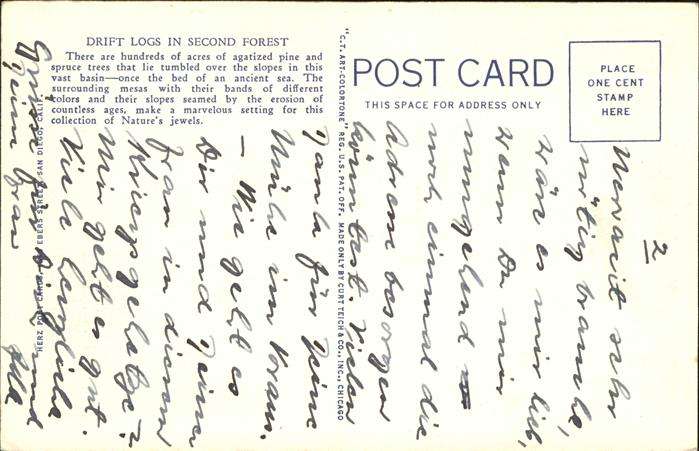 DRIFT LOGS IN SECOND FOREST
There are hundreds of acres of agatized pine and
spruce trees that lie tumbled over the slopes in this
vast basin—once the bed of an ancient sea. The
surrounding mesas with their bands of different
colors and their slopes seamed by the erosion of
countless ages, make a marvelous setting for this
collection of Nature's jewels.
POST CARD
THIS SPACE FOR ADDRESS ONLY
PLACE
ONE CENT
STAMP
HERE
"C.T. ART-COLORTONE" REG. U.S. PAT. OFF. MADE ONLY BY CURT TEICH & CO., INC., CHICAGO
HERZ POST CARDS, EBERS STREET, SAN DIEGO, CALIF.
2
sehr
nötig brauche,
wäre es mir lieb,
wenn Du mir
umgehend
noch einmal die
Adressen besorgen
könntest. Vielen
Dank für Deine
Mühe im Voraus.
— Wie geht es
Dir und Deiner
Frau in diesem
Mir geht es gut.
Viele herzliche
Grüße Dir und
Deiner Frau